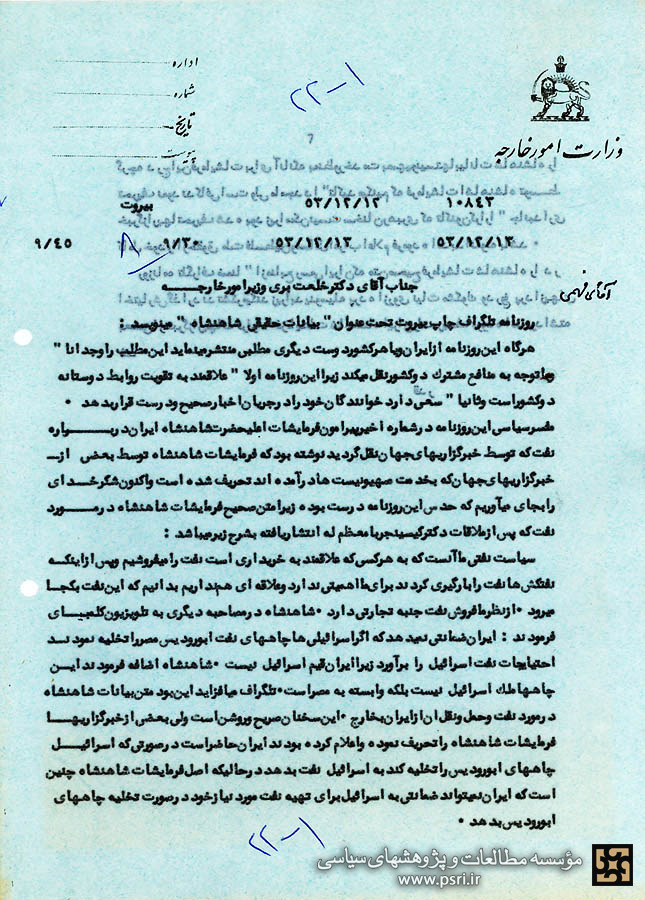 اداره
شماره
تاریخ
پیوست
وزارت امور خارجه
۲۲-۱
۱۰۸۴۳ ۵۳/۱۲/۱۲ بیروت
۵۳/۱۲/۱۳ ۵۳/۱۲/۱۳ ۹/۳۰ ۹/۴۵
۸
جناب آقای دکتر خلعت بری وزیر امور خارجه
روزنامه تلگراف چاپ بیروت تحت عنوان " بیانات حقیقی شاهنشاه " مینویسد :
هرگاه این روزنامه از ایران ویا هر کشور دوست دیگری مطلبی منتشر مینماید این مطلب را وجدانا "
وبا توجه به منافع مشترک دو کشور نقل میکند زیرا این روزنامه اولا " علاقمند به تقویت روابط دوستانه
دو کشور است وثانیا " سعی دارد خوانندگان خود را در جریان اخبار صحیح ودرست قرار بدهد .
مفسر سیاسی این روزنامه در شماره اخیر پیرامون فرمایشات اعلیحضرت شاهنشاه ایران در باره
نفت که توسط خبرگزاریهای جهان نقل گردید نوشته بود که فرمایشات شاهنشاه توسط بعضی از
خبرگزاریهای جهان که بخدمت صهیونیست ها درآمده اند تحریف شده است واکنون شکر خدای
را بجای میآوریم که حدس این روزنامه درست بوده زیرا متن صحیح فرمایشات شاهنشاه در مورد
نفت که پس از ملاقات دکتر کیسینجر با معظم له انتشار یافته بشرح زیر میباشد :
سیاست نفتی ما آنست که به هر کسی که علاقمند به خریداری است نفت را میفروشیم وپس از اینکه
نفتکش ها نفت را بارگیری کردند برای ما اهمیتی ندارد وعلاقه ای هم نداریم بدانیم که این نفت بکجا
میرود . از نظر ما فروش نفت جنبه تجارتی دارد . شاهنشاه در مصاحبه دیگری به تلویزیون کلمبیای
فرمودند : ایران ضمانتی نمیدهد که اگر اسرائیلی ها چاههای نفت ابورودیس مصر را تخلیه نمودند
احتیاجات نفت اسرائیل را برآورد زیرا ایران قیم اسرائیل نیست . شاهنشاه اضافه فرمودند این
چاهها ملک اسرائیل نیست بلکه وابسته به مصر است . تلگراف میافزاید این بود متن بیانات شاهنشاه
در مورد نفت وحمل ونقل آن از ایران بخارج . این سخنان صریح وروشن است ولی بعضی از خبرگزاریها
فرمایشات شاهنشاه را تحریف نموده واعلام کرده بودند ایران حاضر است در صورتی که اسرائیل
چاههای ابورودیس را تخلیه کند به اسرائیل نفت بدهد در حالیکه اصل فرمایشات شاهنشاه چنین
است که ایران نمیتواند ضمانتی به اسرائیل برای تهیه نفت مورد نیاز خود در صورت تخلیه چاههای
ابورودیس بدهد .
۲۲-۱
مؤسسه مطالعات و پژوهشهای سیاسی
www.psri.ir